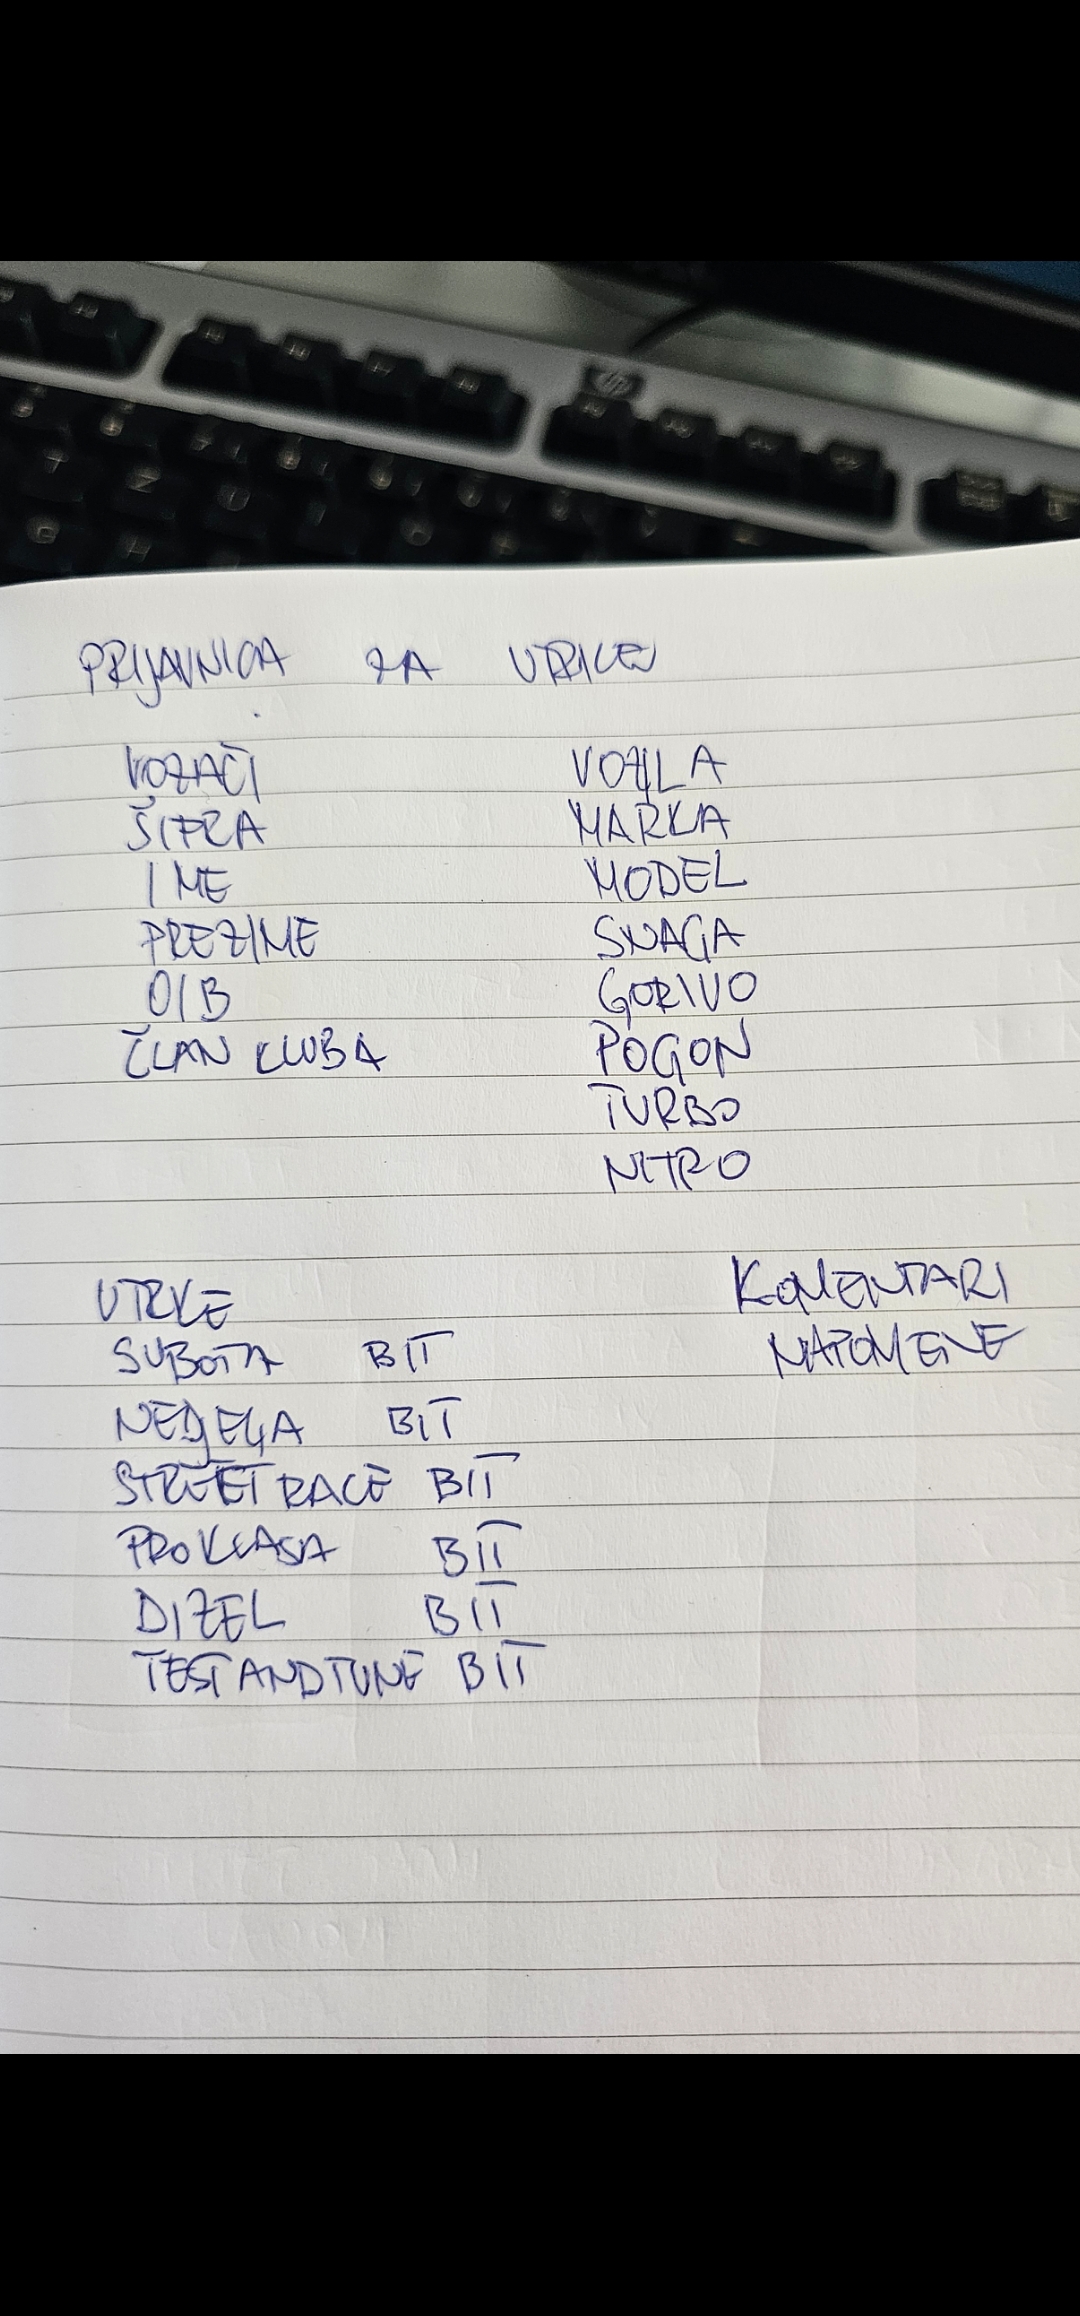 PRIJAVNICA ZA UTRKU
VOZAČI
ŠIFRA
IME
PREZIME
OIB
ČLAN KLUBA
VOZILA
MARKA
MODEL
SNAGA
GORIVO
POGON
TURBO
NITRO
UTRKE
SUBOTA BIT
NEDJELJA BIT
STREET RACE BIT
PRO KLASA BIT
DIZEL BIT
TEST AND TUNE BIT
KOMENTARI
NAPOMENE
hp